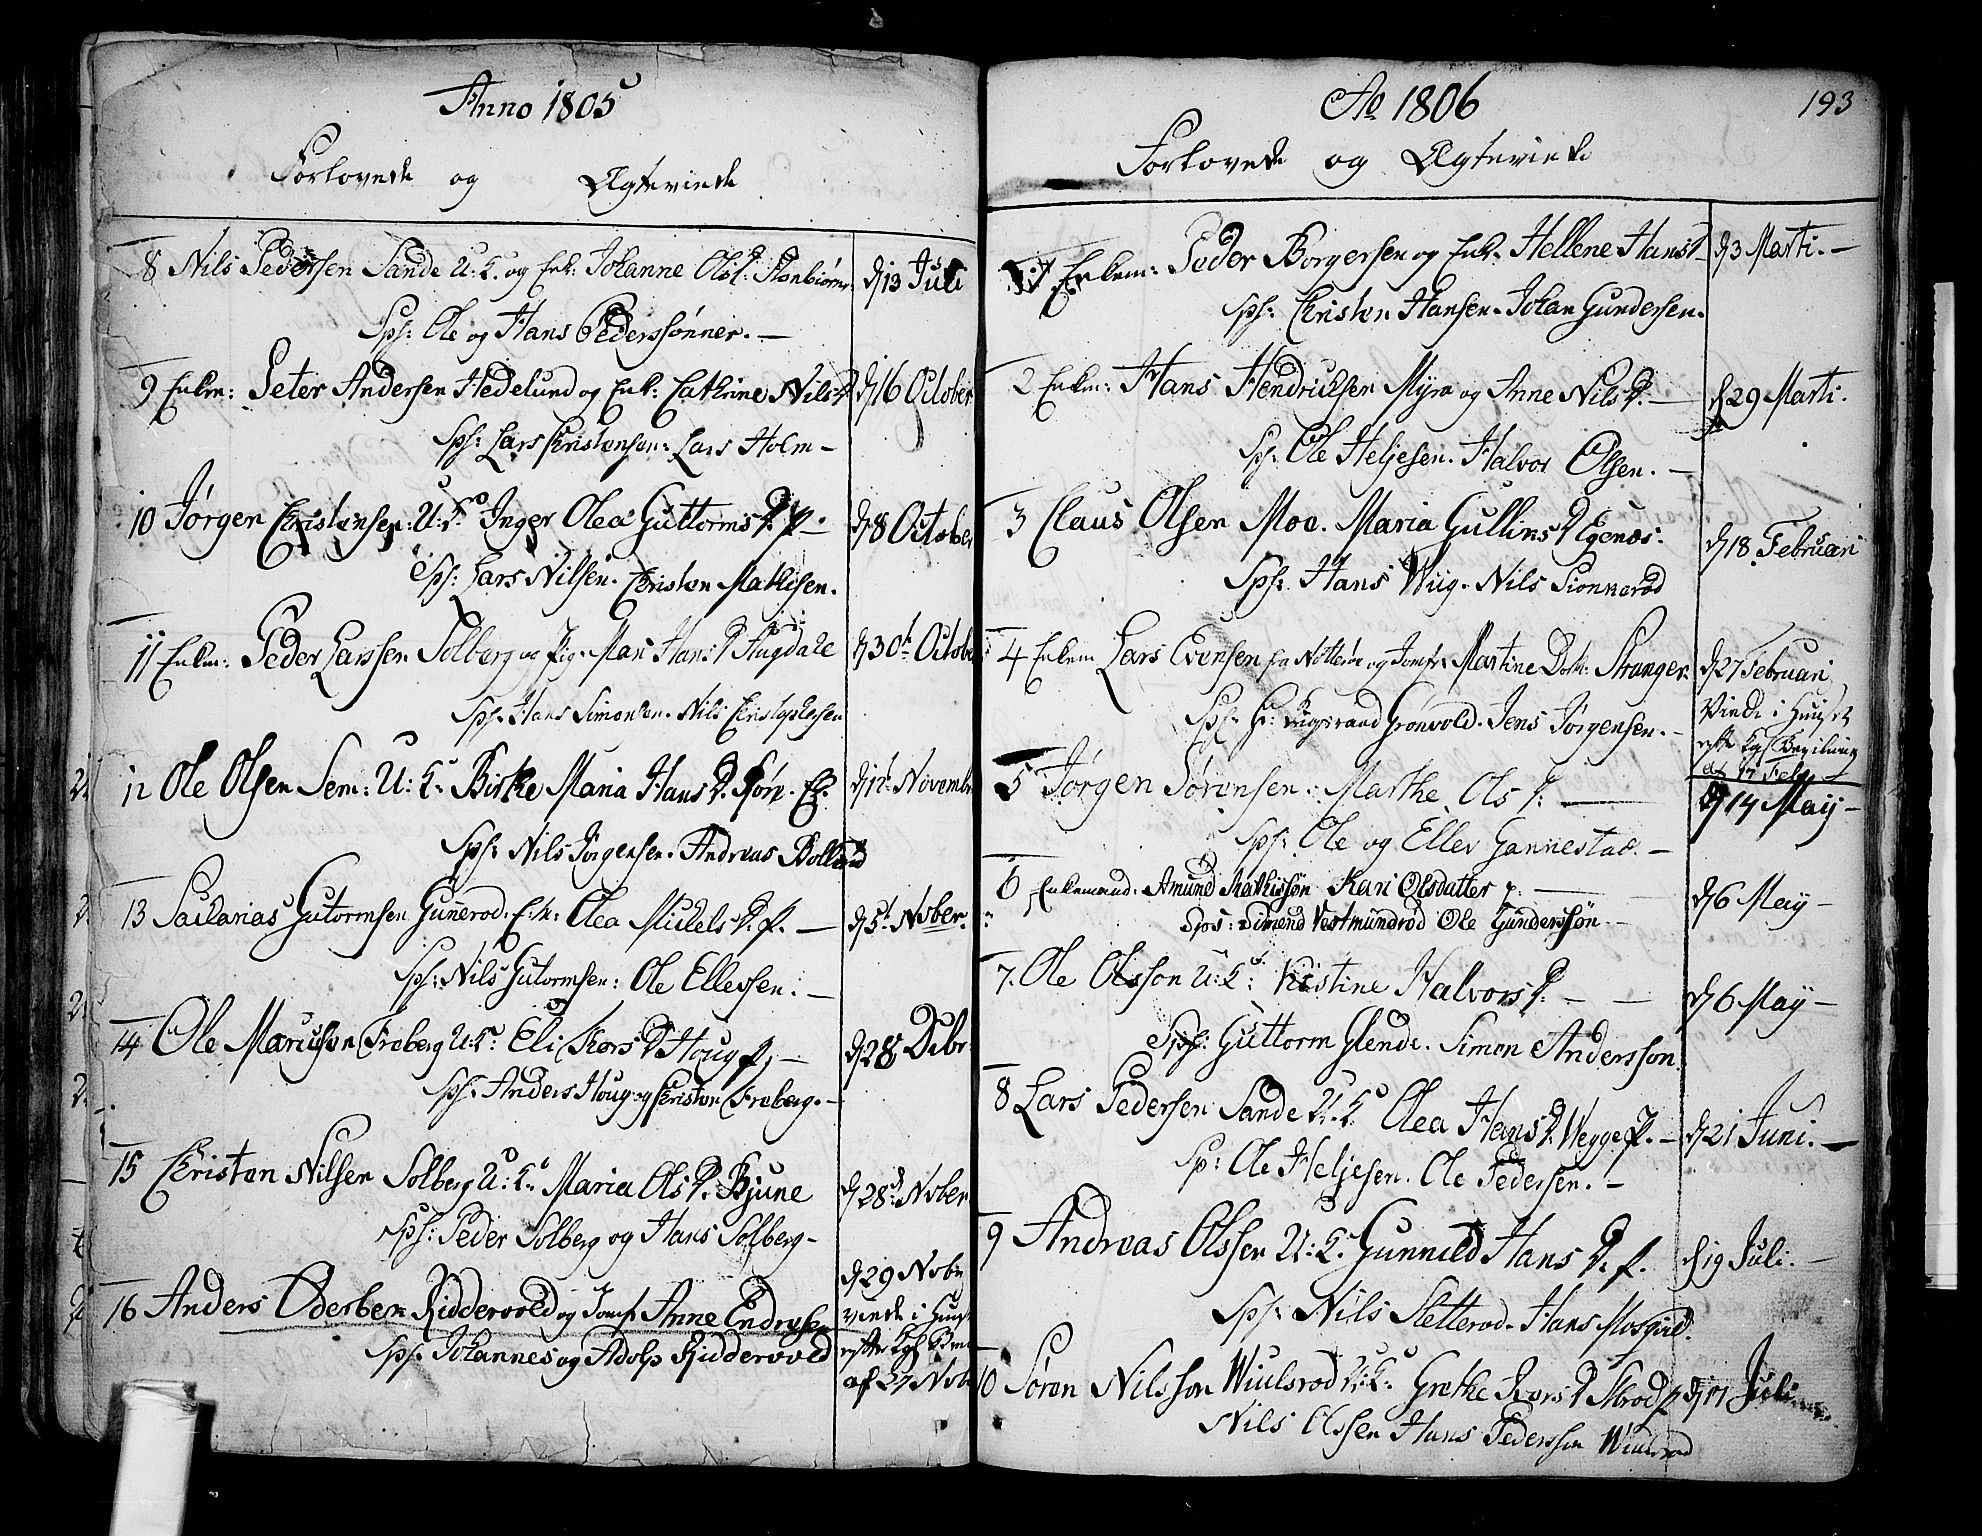 Anno 1805
Forlovede og Ægteviede
8 Nils Pedersen Sande U: K. og Enk: Johanne Olsd:
d 13 Juli
Sps: Ole og Hans Pederssønner. —
9 Enkm: Peter Andersen Hedelund og Enk: Cathrine Nilsd
d 16 October
Sps: Lars Christensen: Lars Holm —
10 Jørgen Christensen: U: K. Inger Olea Guttorms D. P. —
d 8 October
Sps: Lars Nilsen. Christen Mathesen.
11 Enkm: Peder Larssen Solberg og Pig. Mari Hans D Haugdale
d 30t Octob
Sps. Hans Simonsen. Nils Christophersen
12 Ole Olsen Sem: U: K. Birthe Maria Hans D.
d 12t Novembr
Sps: Nils Jørgensen. Andreas Bollerød
13 Sacharias Gutormsen Gunerod. E: K: Olea Mickels D. P. —
d 5t Nober.
Sps: Nils Gutormsen: Ole Ellevsen. —
14 Ole Mariusen Freberg U: K. Eli Lars D Houg P. —
d 28 Debr
Sps. Anders Houg og Christen Freberg. —
15 Christen Nilsen Solberg U: K. Maria Ols D. Bjune
d 28d Nober
Sps: Peder Solberg og Hans Solberg —
16 Anders Oderben Riddervold og Jomf. Anne Endresen
d 29 Nobr
viede i Huus
efter Kgl Bev
af 27 Nob
Sps. Johannes og Adolp Riddervold
Ao 1806
193
Forlovede og Ægteviede
1 Enkem: Peder Borgersen og Enk. Hellene Hansd
d 3 Marti. —
Sps: Christen Hansen. Johan Gundersen.
2 Enkm: Hans Hendrichsen Myra og Anne Nils D. —
d 29 Marti.
Sps. Ole Heljesen. Halvor Olsen. —
3 Claus Olsen Moe. Maria Gullins D Egenæs.
d 18 Februari
Sps. Hans Wiig. Nils Pionnerød
4 Enkem Lars Evensen fra Nøtterøe og Jomfr: Martine Dort: Stranger
d 27 Februari
Viede i Huuset
efter Kgl Bevilning
af 17 Feb
Sps. Hr: Grønvold. Jens Jørgensen. —
5 Jørgen Sørensen. Marthe Ols D. —
d 14 May —
Sps: Ole og Ellev Gannestad. —
6 Enkemand. Amund Mathisøn Kari Olsdatter P. —
d 6 May —
Sps: Simend Vestmundrød Ole Gunderssøn —
7. Ole Olsson U: K. Kistine Halvors D. — —
d 6 May —
Sps: Guttorm Glende. Simon Andersson
8 Lars Pedersen Sande U: K. Olea Hans D. Wegge P. —
d 21 Juni. —
Sps: Ole Heljesen. Ole Pedersen. —
9 Andreas Olssen U: K. Gunnild Hans D. P.
d 19 Juli. —
Sps. Nils Sletterod. Hans Mosgvild.
10 Søren Nilsson Wiulsrod U: K. Grethe Lars D P
d 17 Juli
Nils Olssen Hans Pederssen Wiulsrod